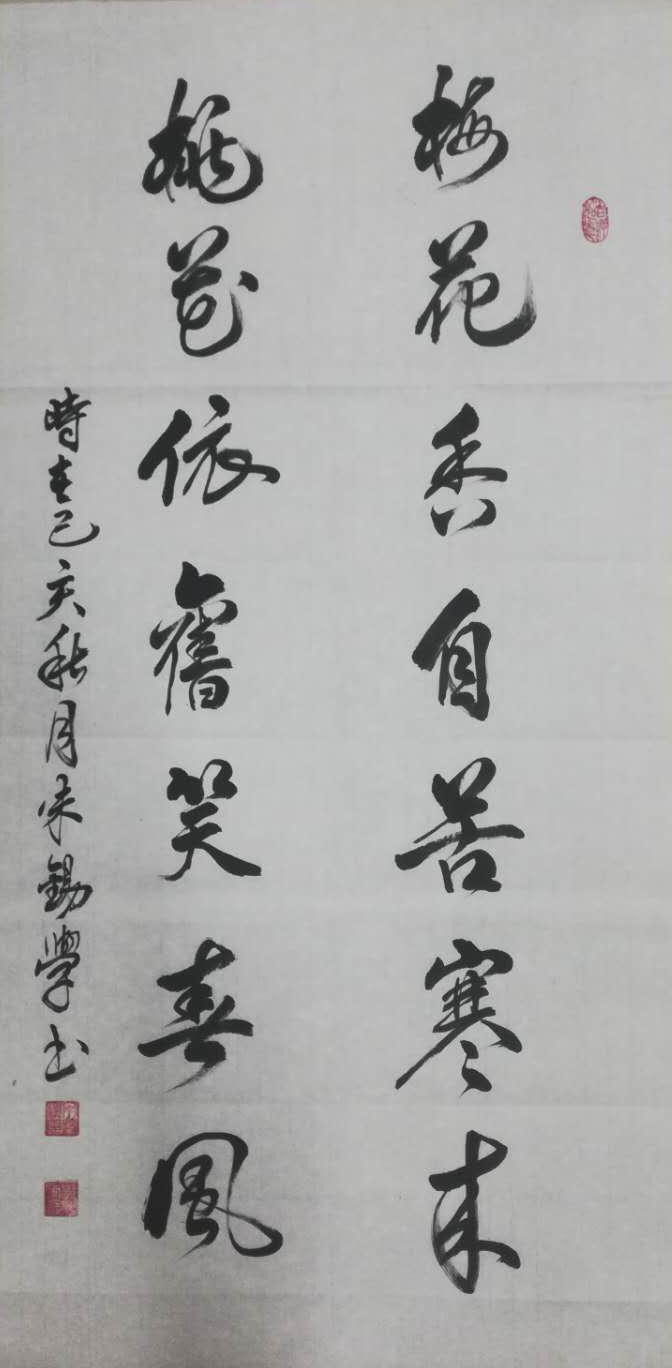 梅花香自苦寒来
桃花依舊笑春風
時在己亥秋月朱錫學书